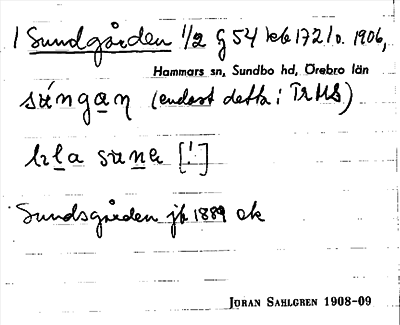 1 Sundgården 1/2 G 54 keb 172 l o. 1906,
Hammars sn, Sundbo hd, Örebro län
súngaη (endast detta i TrHS)
lıla suna [!]
Sundsgården jb 1889 ek
JÖRAN SAHLGREN 1908-09